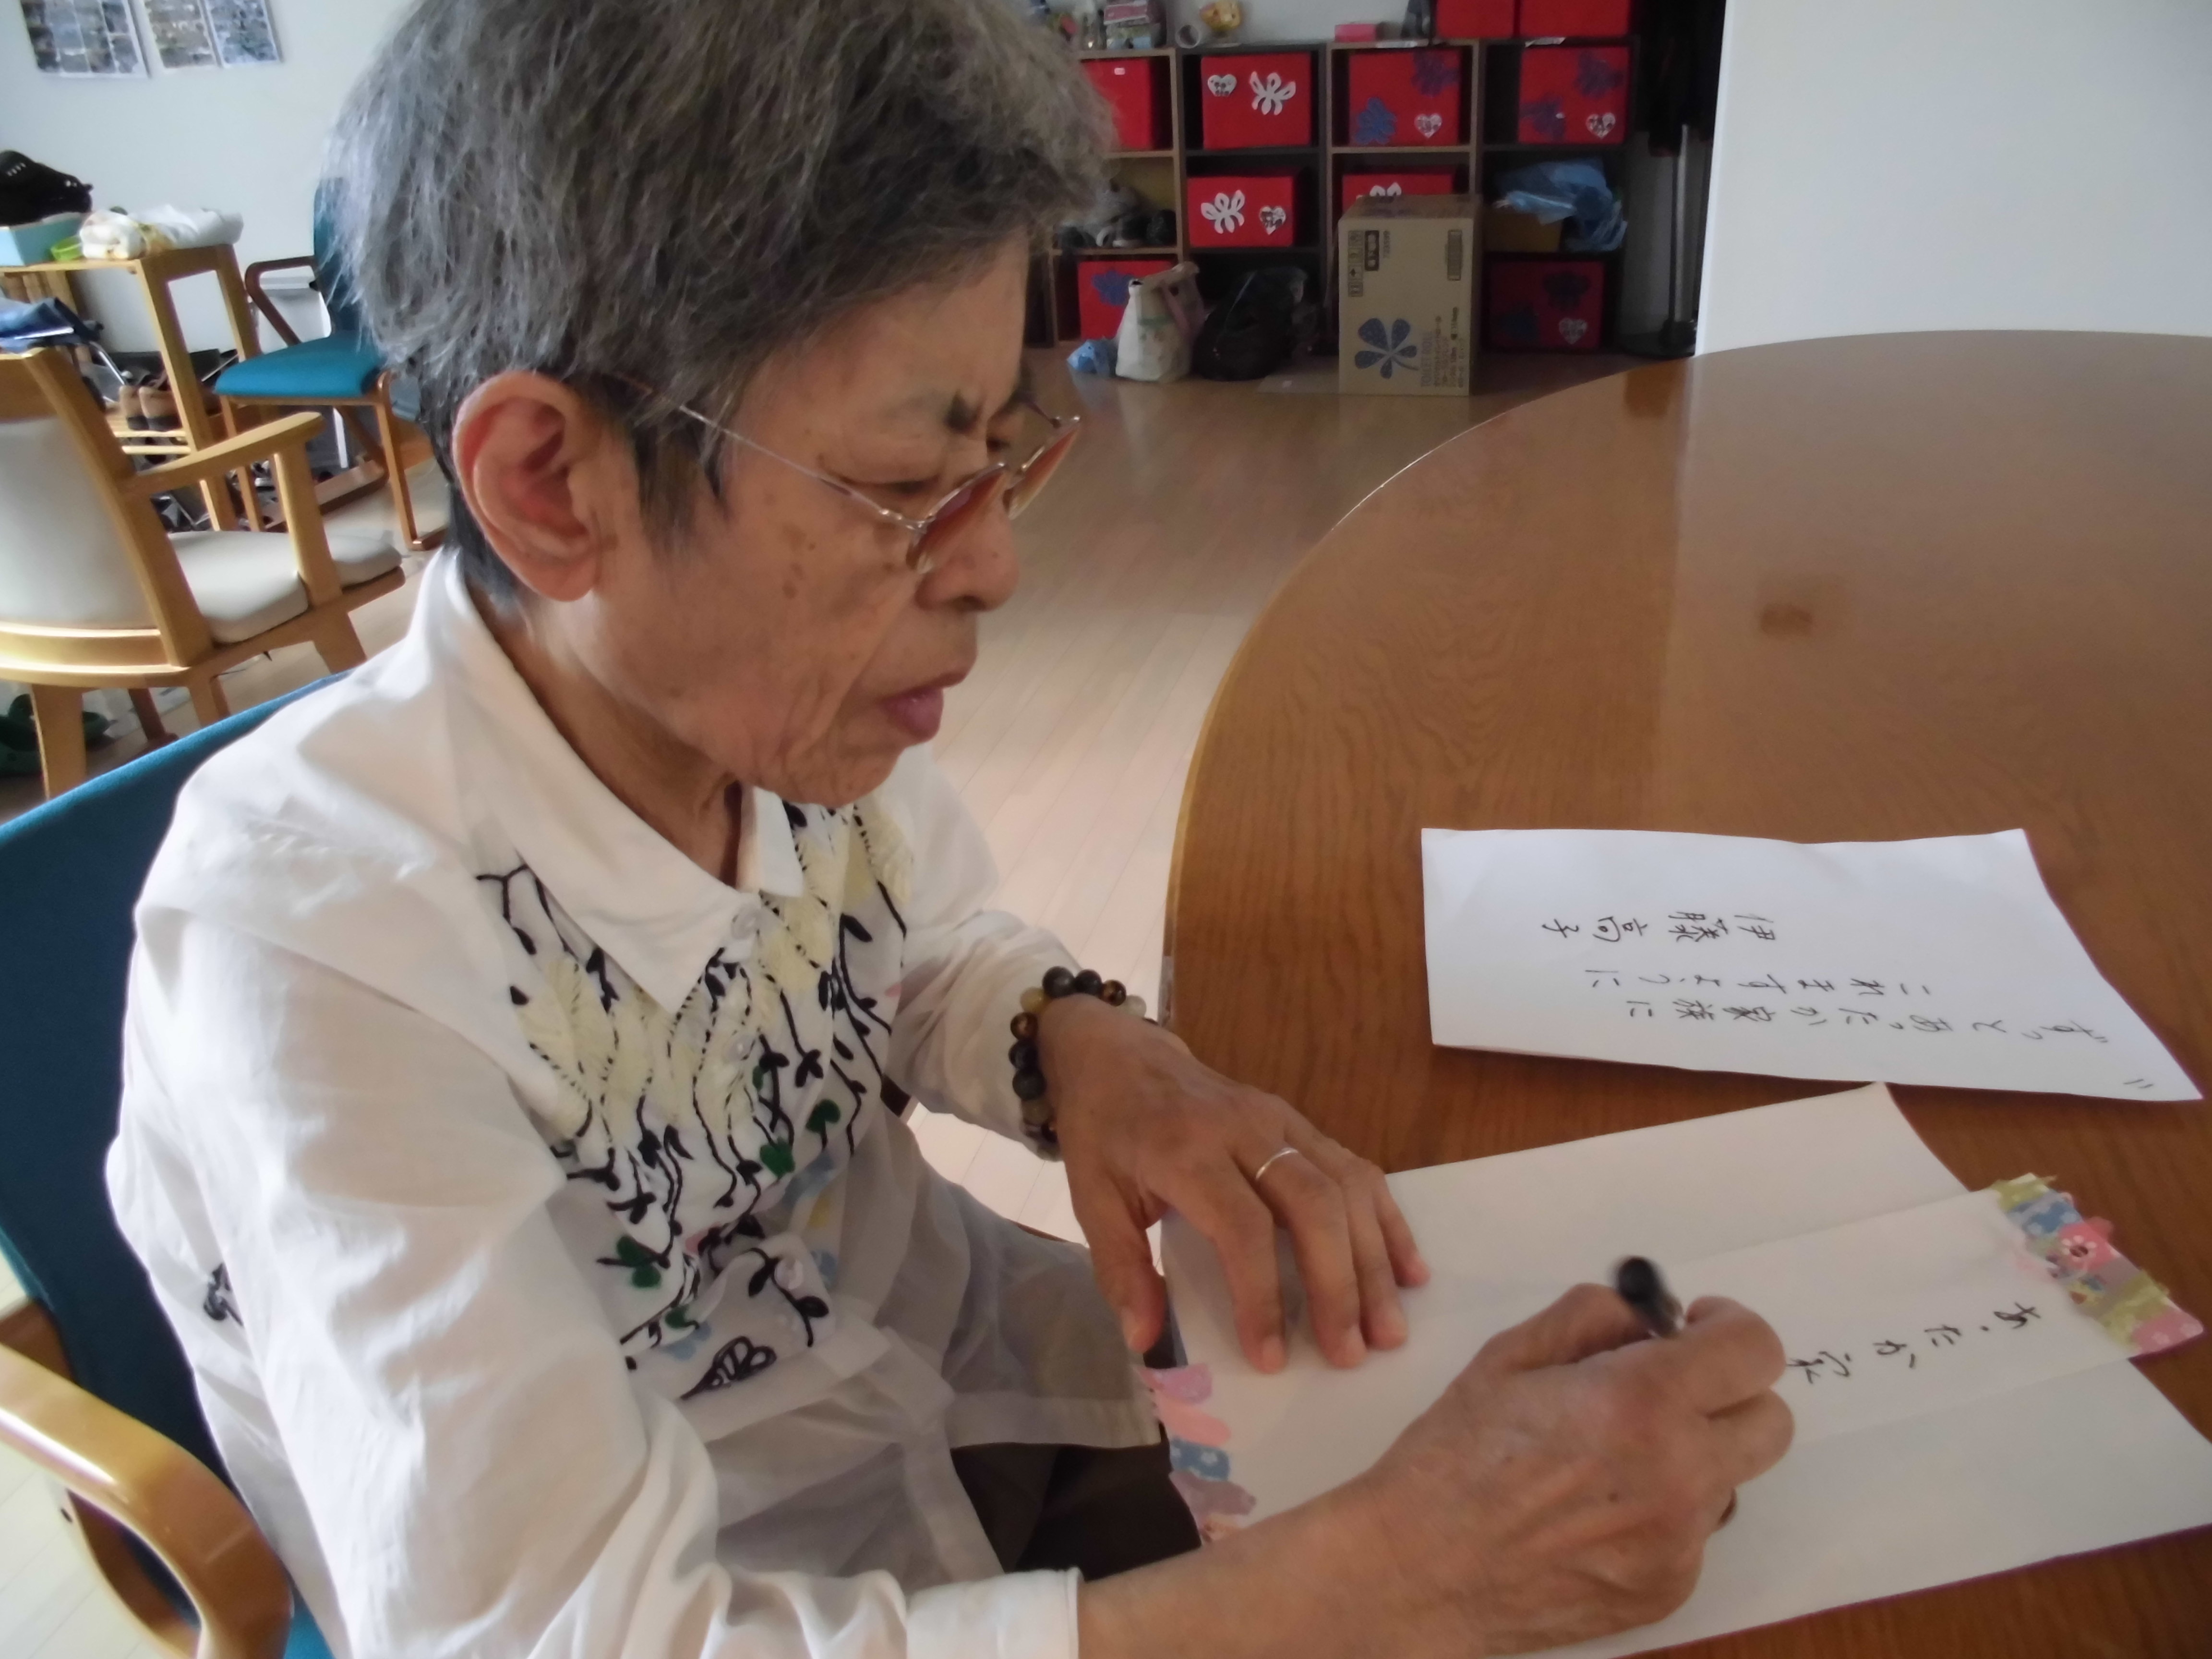 ずっとあったか家族に
これますように
伊藤高子
あったか家